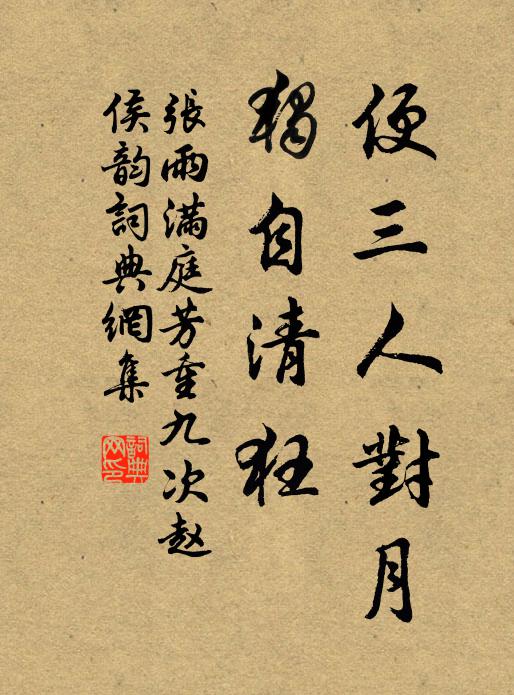 便三人對月
獨自清狂
張雨滿庭芳重九次趙
侯韵詞典網集
詞典网印